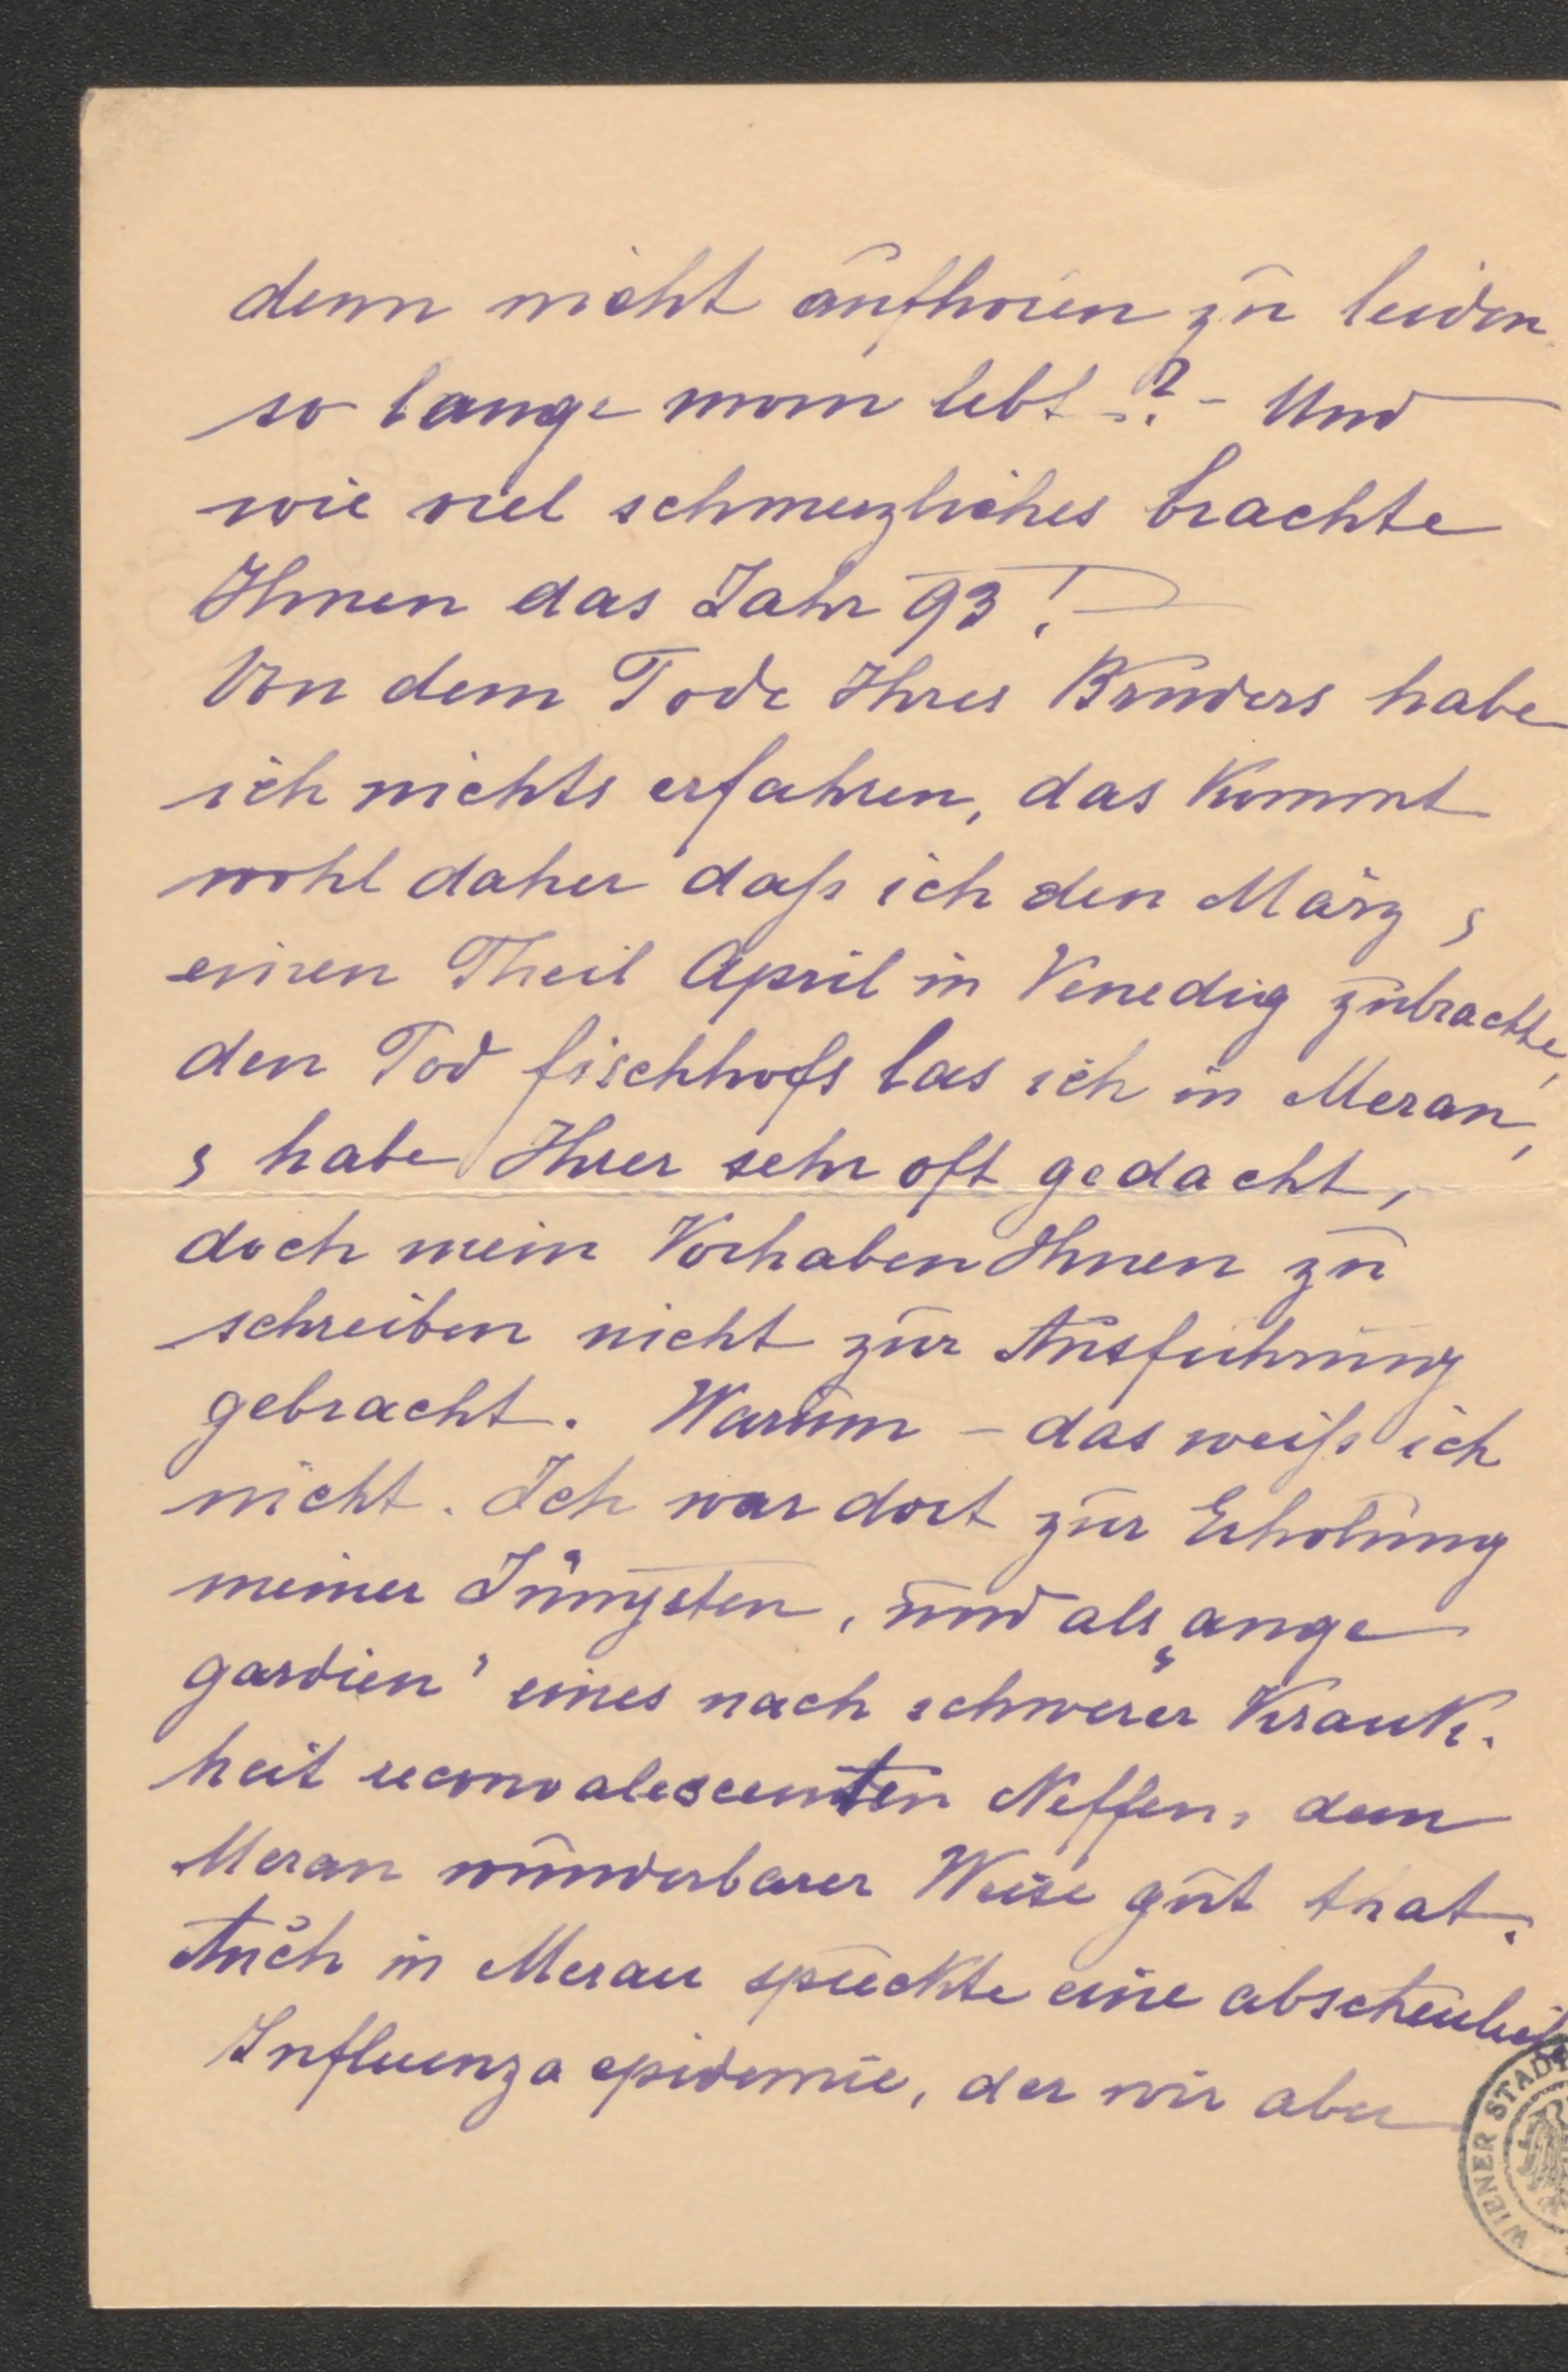 denn nicht aufhören zu leiden
so lange man lebt –? – Und
wie viel schmerzliches brachte
Ihnen das Jahr 93! –
Von dem Tode Ihres Bruders habe
ich nichts erfahren, das kommt
wohl daher daß ich den März &
einen Theil April in Venedig zubrachte,
den Tod Fischhofs las ich in Meran,
& habe Ihrer sehr oft gedacht,
doch mein Vorhaben Ihnen zu
schreiben nicht zur Ausführung
gebracht. Warum – das weiß ich
nicht. Ich war dort zur Erholung
meiner Jüngsten, und als „ange
gardien" eines nach schwerer Krank-
heit reconvalescenten Neffen, dem
Meran wunderbarer Weise gut that.
Auch in Meran spuckte eine abscheuliche
Influenza epidemie, der wir aber
WIENER STADT